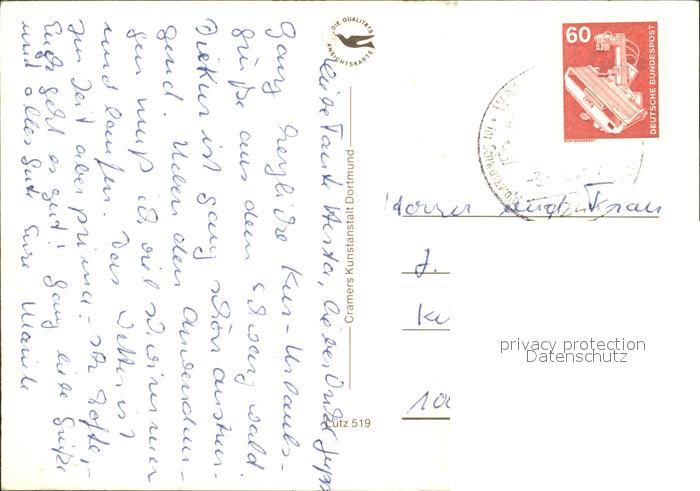 Liebe Tante Herta, lieber Onkel Jupp
Ganz herzliche Kur-Urlaubs-
grüße aus dem Schwarzwald.
Die Kur ist ganz schön anstren-
gend. Neben den Anwendun-
gen muß ich viel schwimmen
und laufen. Das Wetter ist
zur Zeit aber prima. Ich hoffe,
Euch geht es gut! Ganz liebe Grüße
und alles Gute Eure
DIE QUALITÄTS
ANSICHTSKARTE
Cramers Kunstanstalt Dortmund
Lütz 519
60
DEUTSCHE BUNDESPOST
RÖNTGENGERÄT
Herrn und Frau
J.
privacy protection
Datenschutz